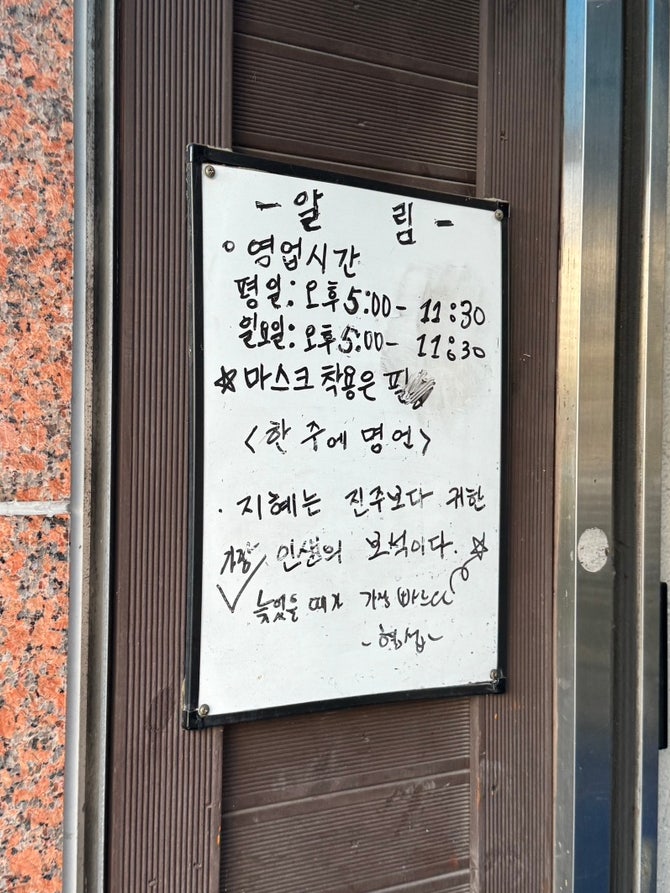 - 알 림 -
○ 영업시간
평일: 오후 5:00 - 11:30
일요일: 오후 5:00 - 11:30
☆ 마스크 착용은 필
<한 중에 명언>
· 지혜는 진주보다 귀한
가장 인생의 보석이다. ☆
늦었을 때가 가장 빠르다